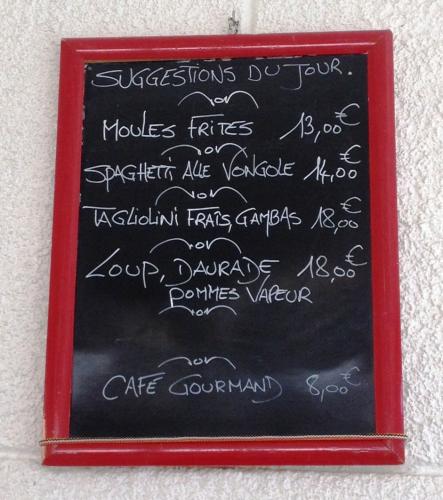 SUGGESTIONS DU JOUR.
MOULES FRITES 13,00€
SPAGHETTI ALLE VONGOLE 14,00€
TAGLIOLINI FRAIS, GAMBAS 18,00€
LOUP, DAURADE 18,00€
POMMES VAPEUR
CAFÉ GOURMAND 8,00€